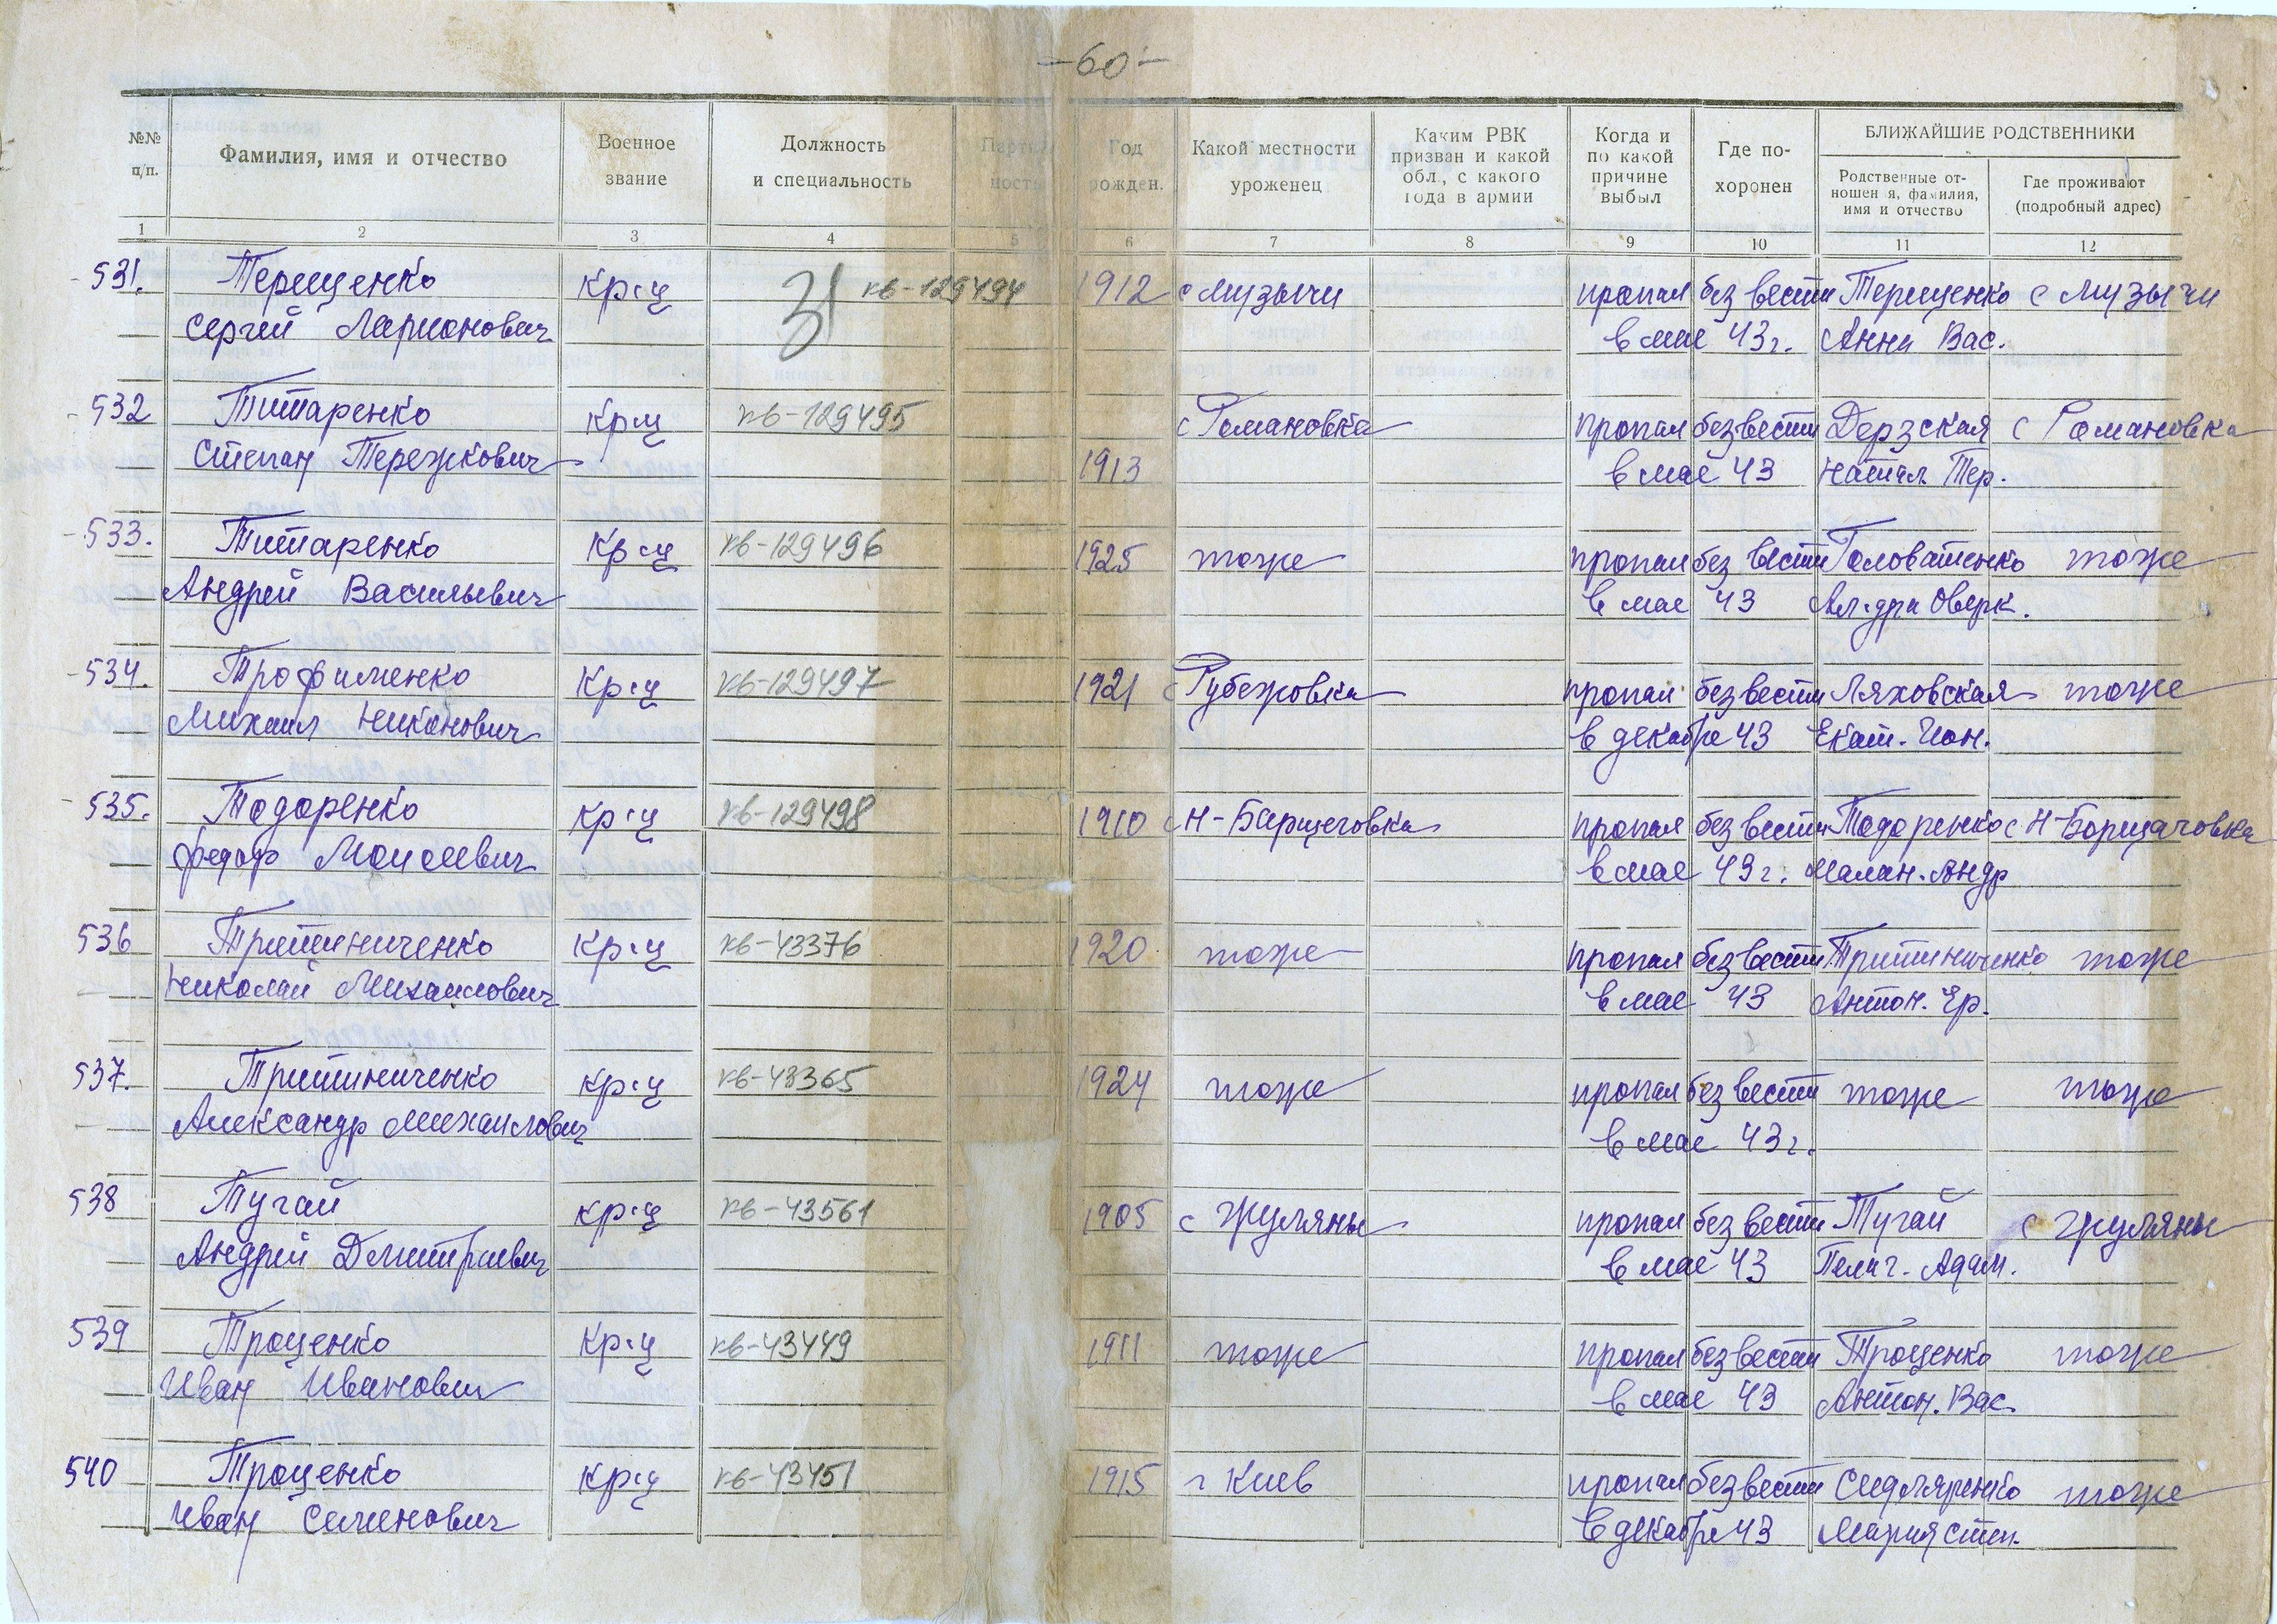 -60-
№№ п/п.
Фамилия, имя и отчество
Военное звание
Должность и специальность
Партий ность
Год рожден.
Какой местности уроженец
Каким РВК призван и какой обл., с какого года в армии
Когда и по какой причине выбыл
Где по- хоронен
БЛИЖАЙШИЕ РОДСТВЕННИКИ
Родственные от- ношен я, фамилия, имя и отчество
Где проживают (подробный адрес)
1 2 3 4 5 6 7 8 9 10 11 12
531. Терещенко кр-ц 31 кв-129494 1912 с Музычи пропал без вести Терещенко с Музычи
Сергей Ларионович в мае 43г. Анна Вас.
532 Титаренко кр-ц кв-129495 с Романовка пропал без вести Дерзская с Романовка
Степан Тережкович 1913 в мае 43 Натал. Тер.
533. Титаренко кр-ц кв-129496 1925 тоже пропал без вести Головатенко тоже
Андрей Васильевич в мае 43 Ал-дра Оверк.
534. Трофименко кр-ц кв-129497 1921 с Рубежовка пропал без вести Ляховская тоже
Михаил Никонович в декабре 43 Екат. Ион.
535. Тодоренко кр-ц кв-129498 1910 с Н-Барщеговка пропал без вести Тодоренко с Н-Борщаговка
Федор Моисеевич в мае 43г. Малан. Андр
536 Тритиниченко кр-ц кв-43376 1920 тоже пропал без вести Тритиниченко тоже
Николай Михайлович в мае 43 Антон. Ер.
537. Тритиниченко кр-ц кв-43365 1924 тоже пропал без вести тоже тоже
Александр Михайлович в мае 43г.
538 Тугай кр-ц кв-43561 1905 с Жуляны пропал без вести Тугай с Жуляны
Андрей Дмитриевич в мае 43 Пелаг. Адам.
539 Троценко кр-ц кв-43449 1911 тоже пропал без вести Троценко тоже
Иван Иванович в мае 43 Антон. Вас.
540 Троценко кр-ц кв-43451 1915 г Киев пропал без вести Сидляренко тоже
Иван Семенович в декабре 43 Мария Степ.